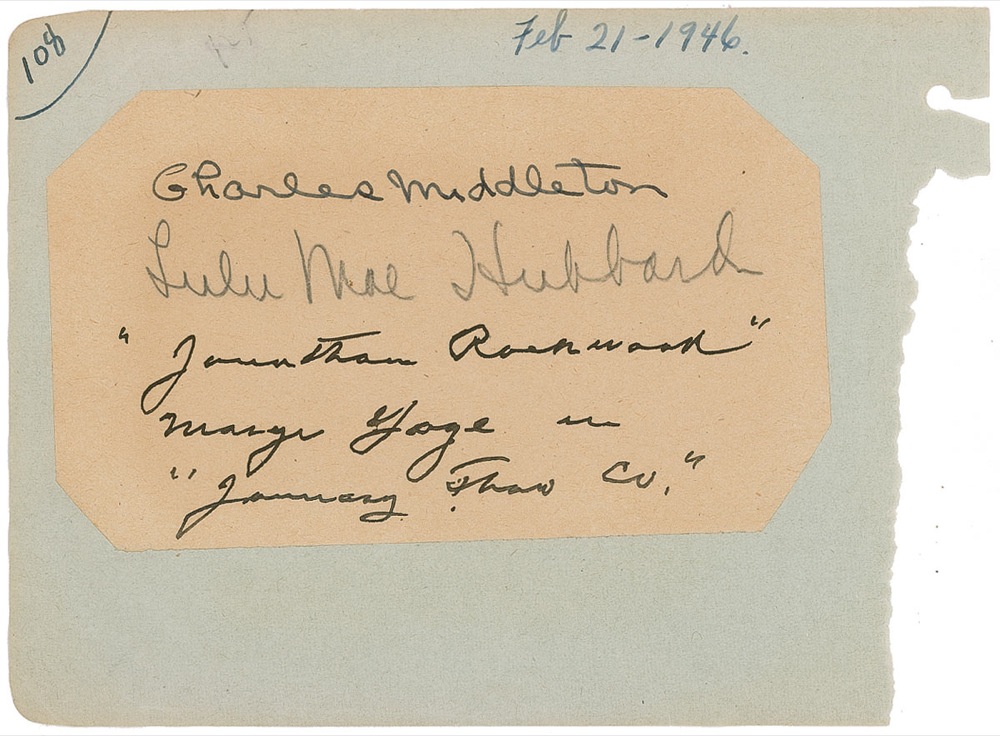 108
Feb 21-1946.
Charles Middleton
Lulu Mae Hubbard
"Jonathan Rockwood"
Marge Gage in
"January Thaw Co."